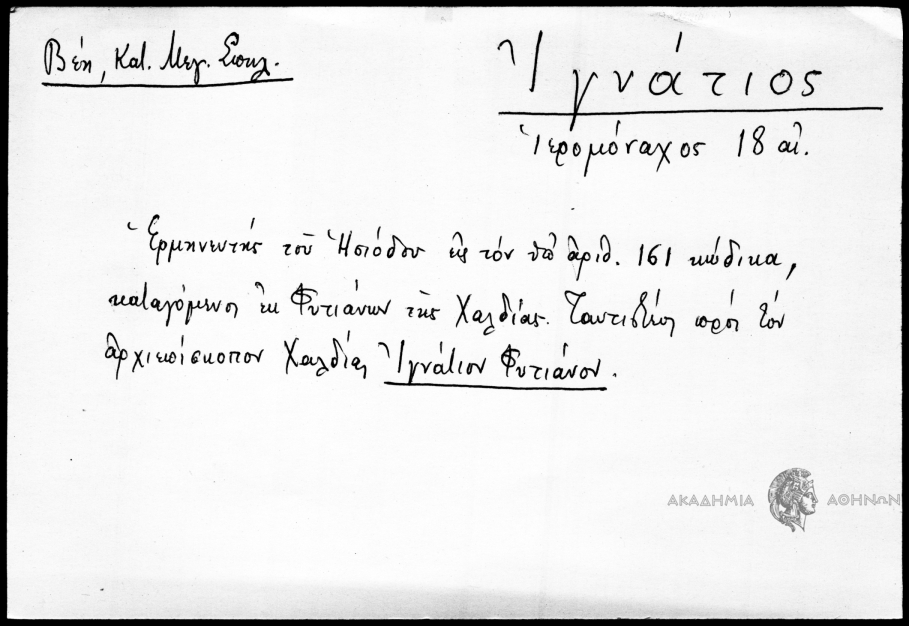 Βέη, Κατ. Μεγ. Σπηλ.
Ἰγνάτιος
Ἱερομόναχος 18 αἰ.
Ἑρμηνευτής τοῦ Ἡσιόδου εἰς τόν ὑπ' ἀριθ. 161 κώδικα,
καταγόμενος ἐκ Φυτιάνων τῆς Χαλδίας. Ταυτιστέος πρός τόν
ἀρχιεπίσκοπον Χαλδίας Ἰγνάτιον Φυτιάνον.
ΑΚΑΔΗΜΙΑ ΑΘΗΝΩΝ